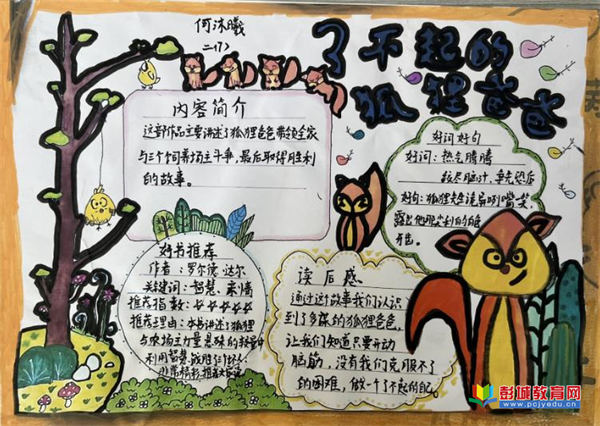 何沐曦
二(7)
了不起的
狐狸爸爸
内容简介
这部作品主要讲述了狐狸爸爸带领全家
与三个饲养场主斗争，最后取得胜利
的故事。
好词好句
好词：热气腾腾
绞尽脑汁、争先恐后
好句：狐狸先生龇牙咧嘴笑，
露出他那尖利的白
牙齿。
好书推荐
作者：罗尔德·达尔
关键词：智慧、亲情
推荐指数：
推荐理由：本书讲述了狐狸
与农场主力量悬殊的较量中
利用智慧，战胜了对手
读后感
通过这个故事我们认识
到了多谋的狐狸爸爸，
让我们知道只要开动
脑筋，没有我们克服不了
的困难，做一个了不起的自己
彭城教育网
www.pcjyedu.cn